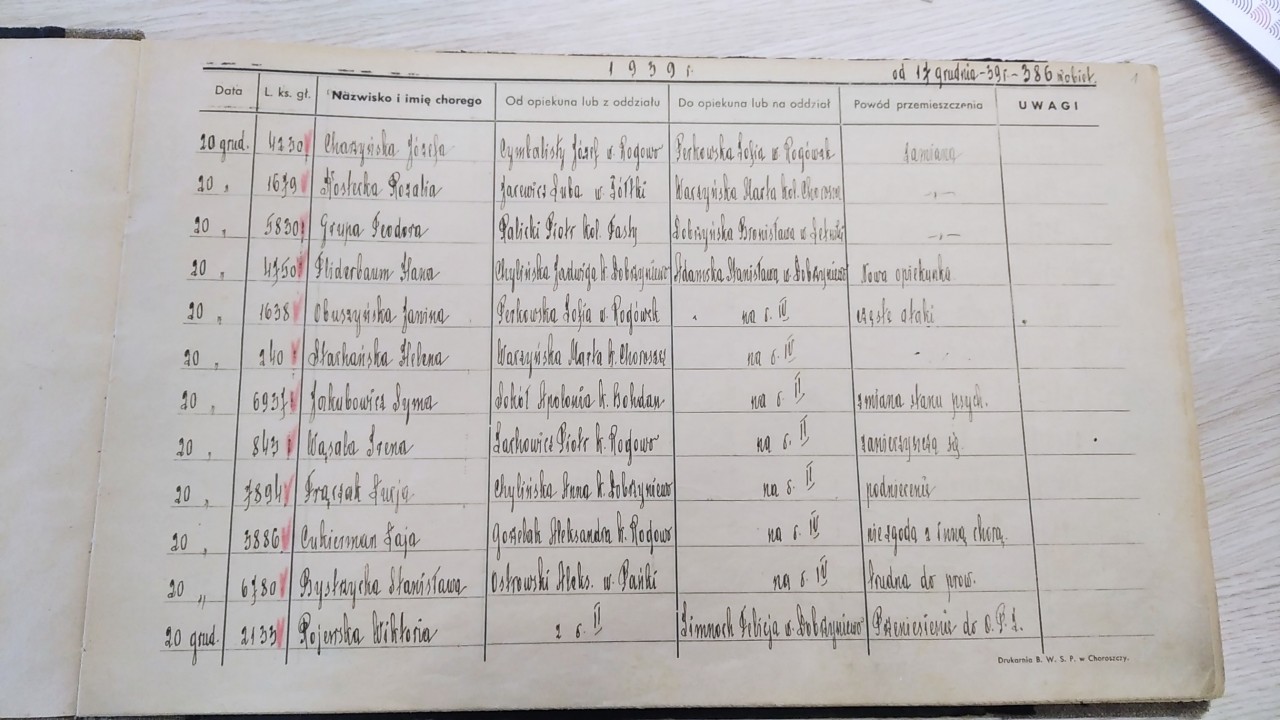 1939 r. od 17 grudnia - 39 r. - 386 kobiet. 1
Data L. ks. gł. Nazwisko i imię chorego Od opiekuna lub z oddziału Do opiekuna lub na oddział Powód przemieszczenia UWAGI
20 grud. 4230 Charzyńska Józefa Cymbalisty Józef w. Rogowo Perkowska Zofia w. Rogówek Zamiana
20 " 1679 Kostecka Rozalia Jarewicz Luba w. Żółtki Warzyńska Marta kol. Choroszcz -"-
20 " 5830 Grupa Teodora Palicki Piotr kol. Fasty Dobrzyńska Bronisława w. -"-
20 " 4750 Fliderbaum Hana Chylińska Jadwiga k. Dobrzyniewo Adamska Stanisława w. Dobrzyniewo Nowa opiekunka
20 " 1638 Obuszyńska Janina Perkowska Zofia w. Rogówek na o. IV częste ataki
20 " 240 Stachańska Helena Warzyńska Marta k. Choroszcz na o. IV
20 " 6937 Jakubowicz Syma Sokół Apolonia k. Bohdan na o. II zmiana stanu psych.
20 " 843 Wąsala Irena Zachowicz Piotr k. Rogowo na o. II zanieczyszcza się
20 " 7894 Frączak Łucja Chylińska Anna k. Dobrzyniewo na o. II podniecenie
20 " 3886 Cukierman Faja Gozelak Aleksandra k. Rogowo na o. IV niezgoda z inną chorą.
20 " 6780 Bystrzycka Stanisława Ostrowski Aleks. w. Pańki na o. IV trudna do prow.
20 grud. 2133 Rojewska Wiktoria z o. II Zimnoch Felicja w. Dobrzyniewo Przeniesienie do O. P. Z.
Drukarnia B. W. S. P. w Choroszczy.